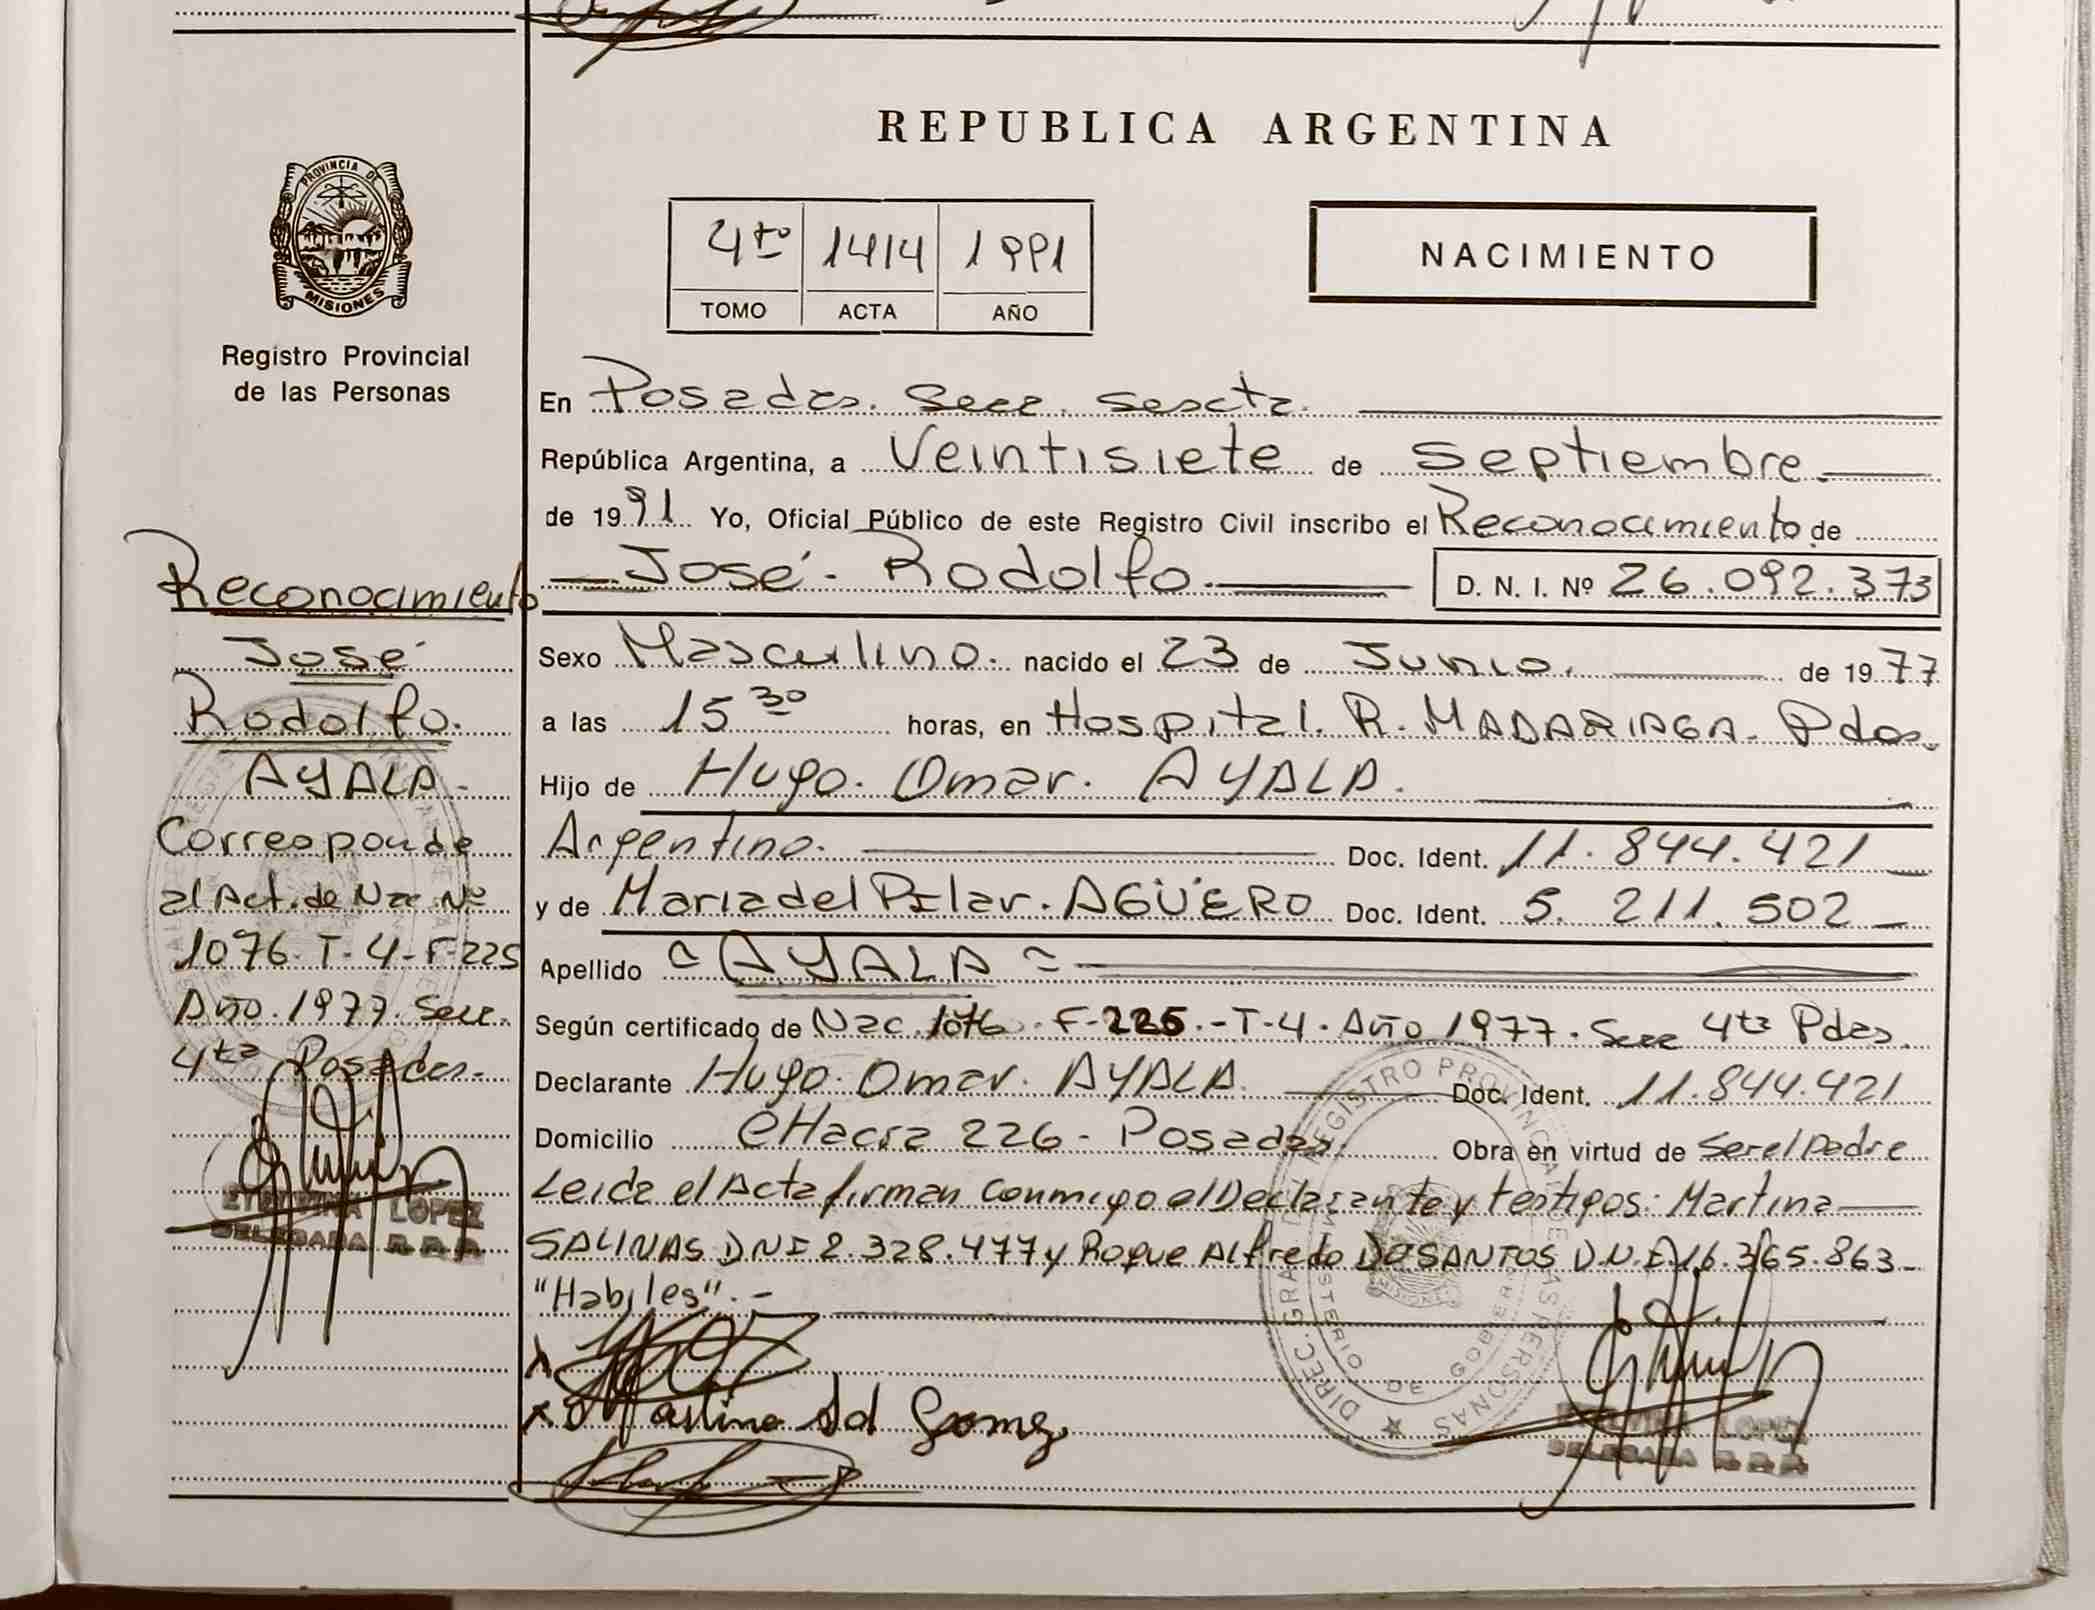 REPUBLICA ARGENTINA
PROVINCIA DE
MISIONES
Registro Provincial
de las Personas
4to 1414 1991
TOMO ACTA AÑO
NACIMIENTO
En Posadas. Secc. Sexta.
República Argentina, a Veintisiete de Septiembre
de 1991 Yo, Oficial Público de este Registro Civil inscribo el Reconocimiento de
José Rodolfo D. N. I. Nº 26.092.373
Sexo Masculino. nacido el 23 de Junio. de 1977
a las 15 30 horas, en Hospital. R. MADARIAGA. Pdas.
Hijo de Hugo. Omar. AYALA.
Argentino. Doc. Ident. 11.844.421
y de Maria del Pilar. AGÜERO Doc. Ident. 5.211.502
Apellido = AYALA =
Según certificado de Nac. 1076. F-225.-T-4. Año 1977. Secc 4ta Pdas.
Declarante Hugo. Omar. AYALA. Doc. Ident. 11.844.421
Domicilio CHacra 226 - Posadas. Obra en virtud de Ser el padre
Leida el Acta firman conmigo el Declarante y testigos: Martina
SALINAS DNI 2.328.477 y Roque Alfredo DOSANTOS D.N.I. 16.365.863
"Habiles".-
Reconocimiento
José
Rodolfo.
AYALA.
Corresponde
al Act. de Nac Nº
1076. T-4-F-225
Año. 1977. Secc.
4ta Posadas.
ETELVINA LOPEZ
DELEGADA R.P.P.
DIREC. GRAL. DEL REGISTRO PROVINCIAL DE LAS PERSONAS
MINISTERIO DE GOBIERNO
ETELVINA LOPEZ
DELEGADA R.P.P.